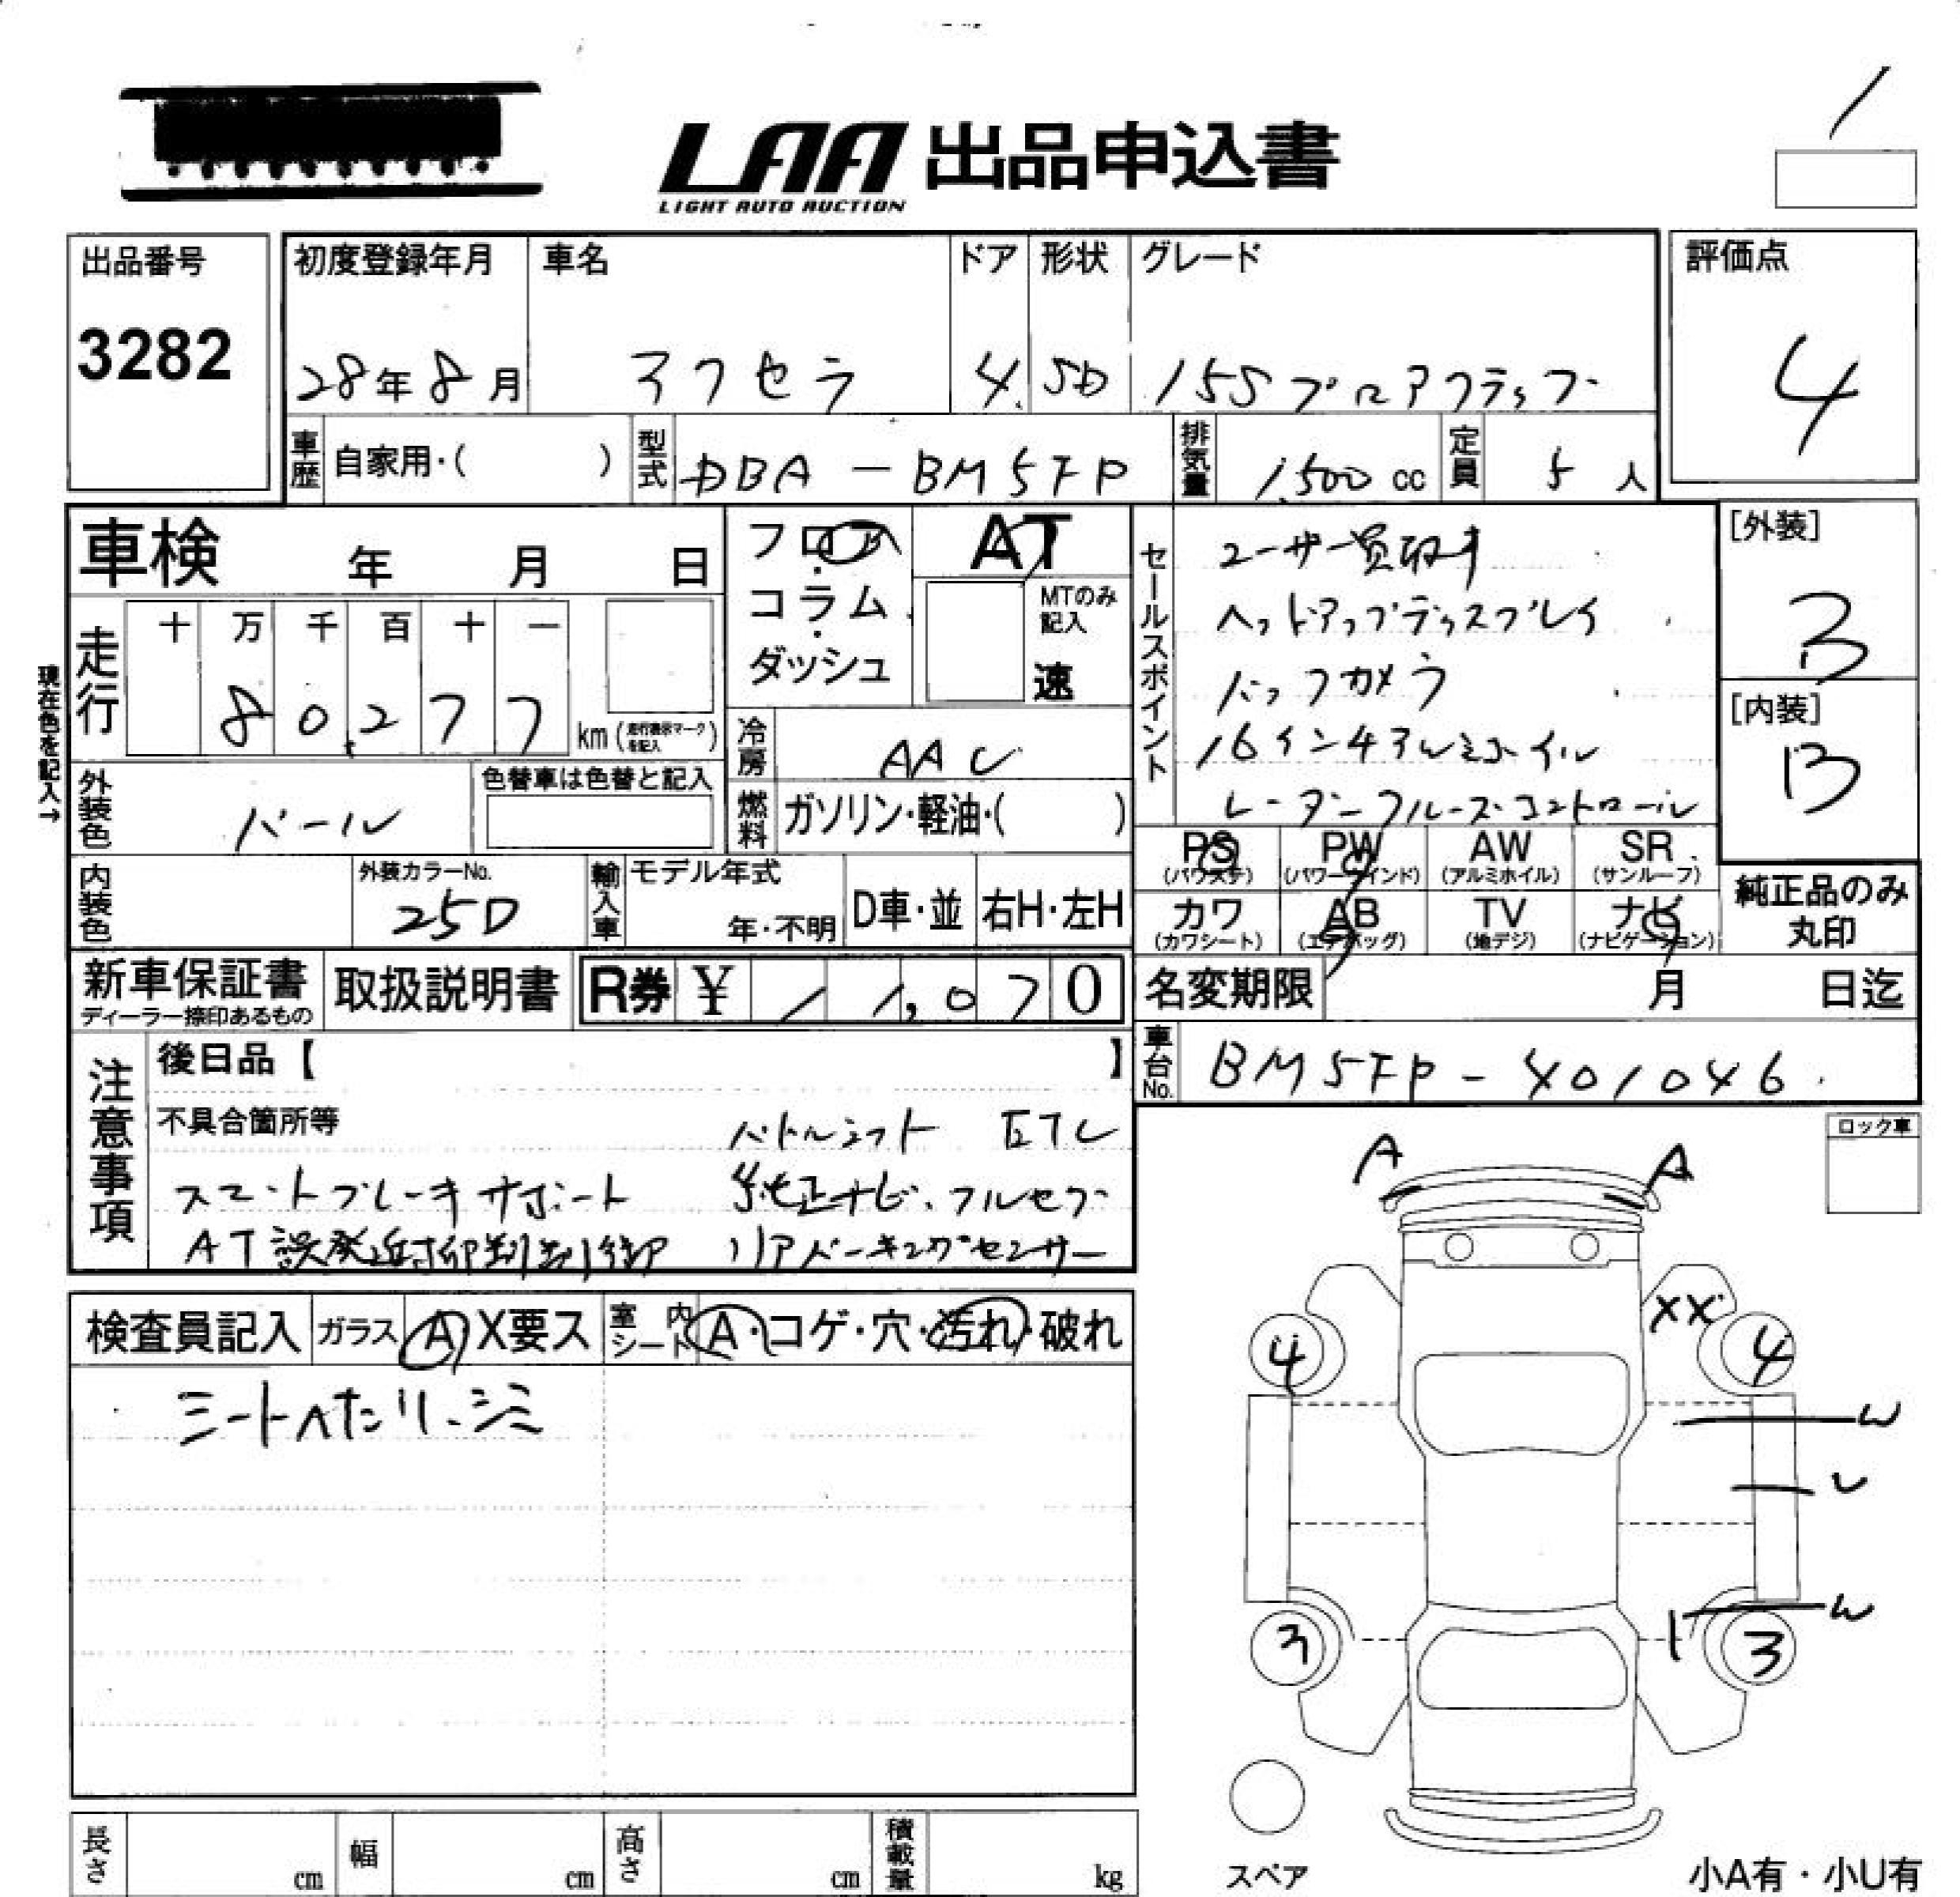 LAA 出品申込書
LIGHT AUTO AUCTION
出品番号
3282
初度登録年月
28年8月
車名
アクセラ
ドア
4
形状
SD
グレード
15Sプロアクティブ
評価点
4
車歴
自家用・( )
型式
DBA-BM5FP
排気量
1,500 cc
定員
5 人
車検 年 月 日
フロア・コラム・ダッシュ
AT
MTのみ記入
速
セールスポイント
ユーザー買取車
ヘッドアップディスプレイ
バックカメラ
16インチアルミホイル
レーダークルーズコントロール
[外装]
3
[内装]
B
現在色を記入→
走行
十 万 千 百 十 一
8 0,2 7 7
km (走行表示マークを記入)
冷房
AAC
外装色
パール
色替車は色替と記入
燃料
ガソリン・軽油・( )
内装色
外装カラーNo.
25D
輸入車
モデル年式
年・不明
D車・並
右H・左H
PS (パワステ)
PW (パワーウインド)
AW (アルミホイル)
SR (サンルーフ)
カワ (カワシート)
AB (エアバッグ)
TV (地デジ)
ナビ (ナビゲーション)
純正品のみ丸印
新車保証書
ディーラー捺印あるもの
取扱説明書
R券 ¥ 11,070
名変期限 月 日迄
車台No.
BM5FP-401046
注意事項
後日品【 】
不具合箇所等
パドルシフト ETC
スマートブレーキサポート 純正ナビ、フルセグ
AT誤発進抑制制御 リアパーキングセンサー
ロック車
検査員記入
ガラス A X要ス
室内シート A・コゲ・穴・汚れ・破れ
シートヘたり、シミ
A A
XX
4 4
W
U
W
3 3
スペア
長さ cm
幅 cm
高さ cm
積載量 kg
小A有・小U有